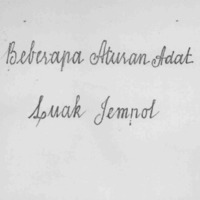 Beberapa Aturan Adat
Luak Jempol